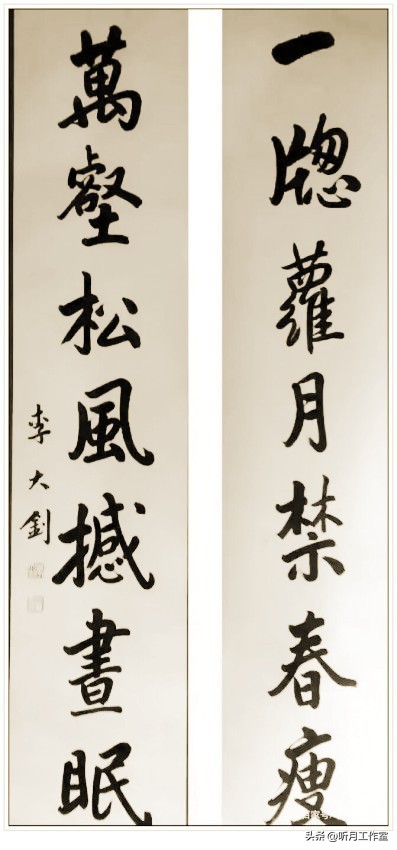 一牕蘿月禁春瘦
萬壑松風撼晝眠
李大釗
头条 @听月工作室